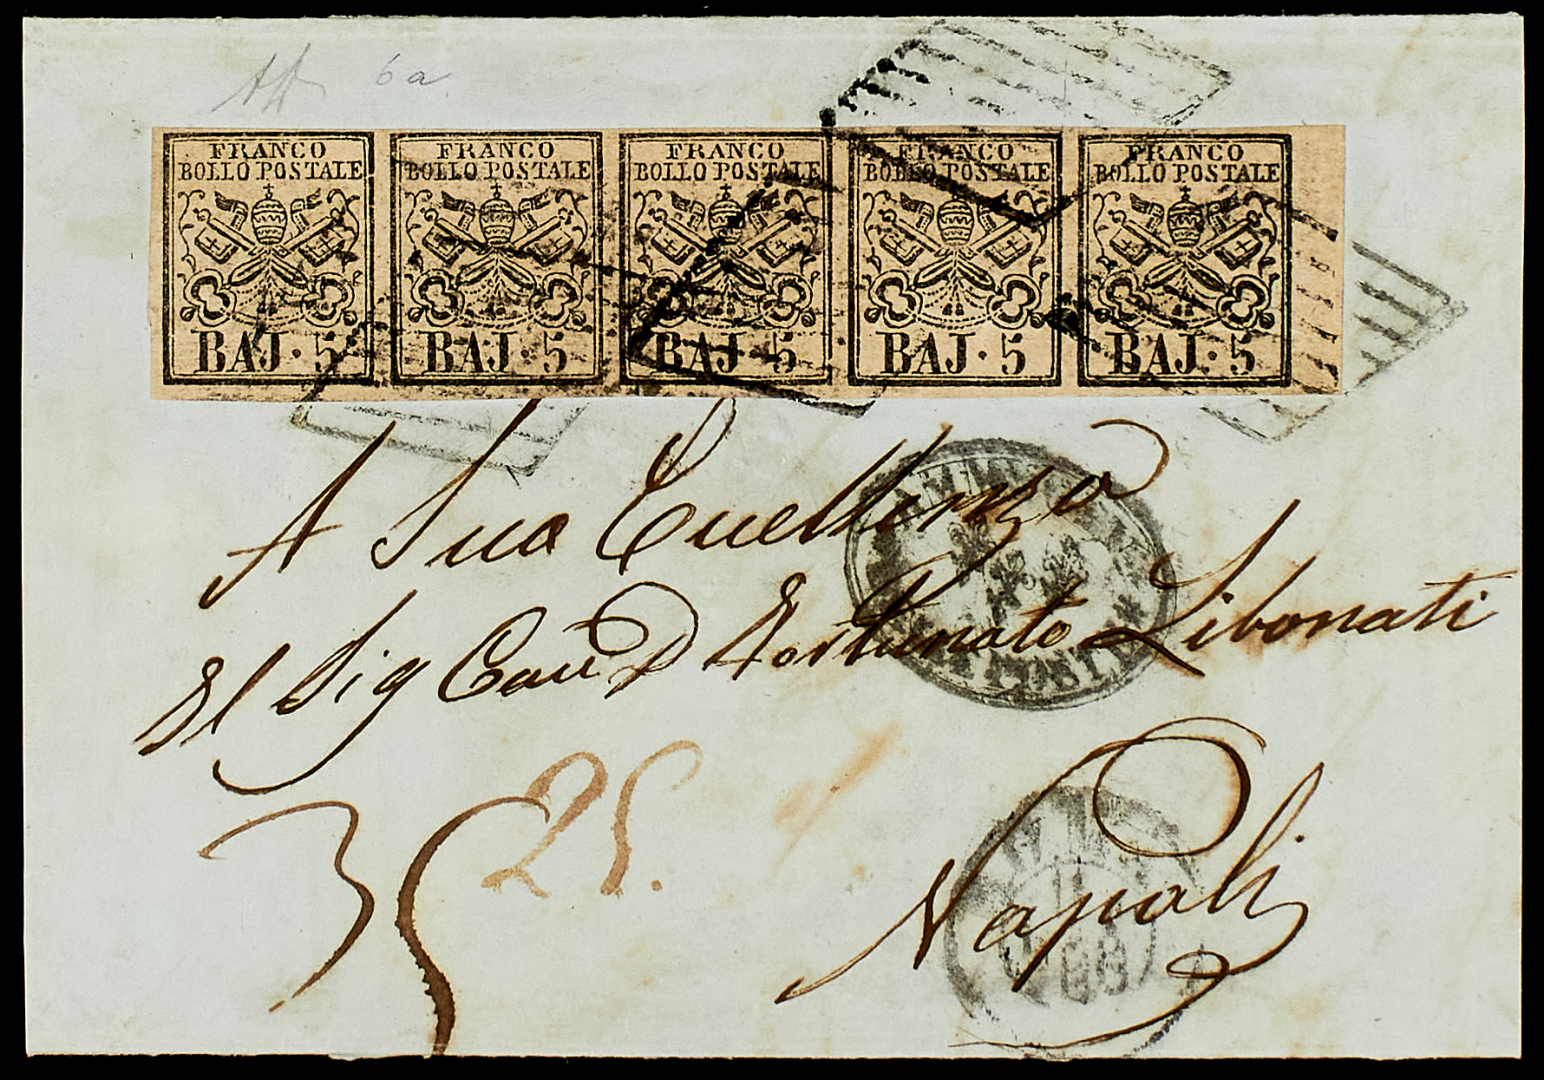 6a
FRANCO FRANCO FRANCO FRANCO FRANCO
BOLLO POSTALE BOLLO POSTALE BOLLO POSTALE BOLLO POSTALE BOLLO POSTALE
BAJ. 5 BAJ. 5 BAJ. 5 BAJ. 5 BAJ. 5
A Sua Eccellenza
Il Sig Cav D Fortunato Libonati
25.
35
Napoli